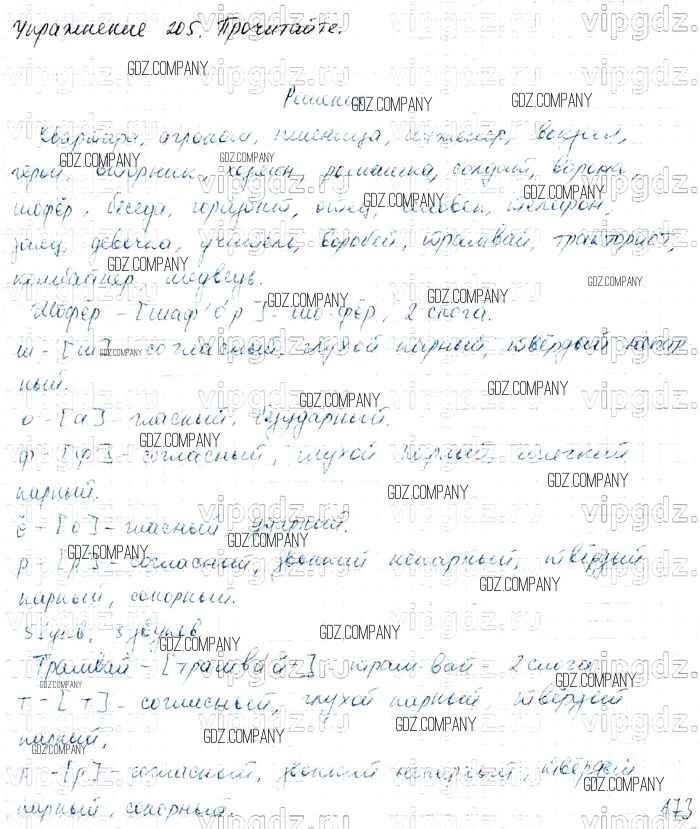 Упражнение 205. Прочитайте.
Решение
Квартира, агроном, пшеница, инженер, вокзал,
герой, вторник, хозяин, ромашка, солдат, ворона,
шофёр, беседа, горизонт, отец, человек, телефон,
заяц, девочка, учитель, воробей, трамвай, тракторист,
комбайнер, медведь.
Шофёр - [шаф'о́р] - шо-фёр, 2 слога.
ш - [ш] - согласный, глухой парный, твёрдый непар-
ный.
о - [а] - гласный, безударный.
ф - [ф'] - согласный, глухой парный, мягкий
парный.
ё - [о́] - гласный ударный.
р - [р] - согласный, звонкий непарный, твёрдый
парный, сонорный.
5 букв, 5 звуков
Трамвай - [трамва́й'] - трам-вай - 2 слога
т - [т] - согласный, глухой парный, твёрдый
парный,
р - [р] - согласный, звонкий непарный, твёрдый
парный, сонорный.
173